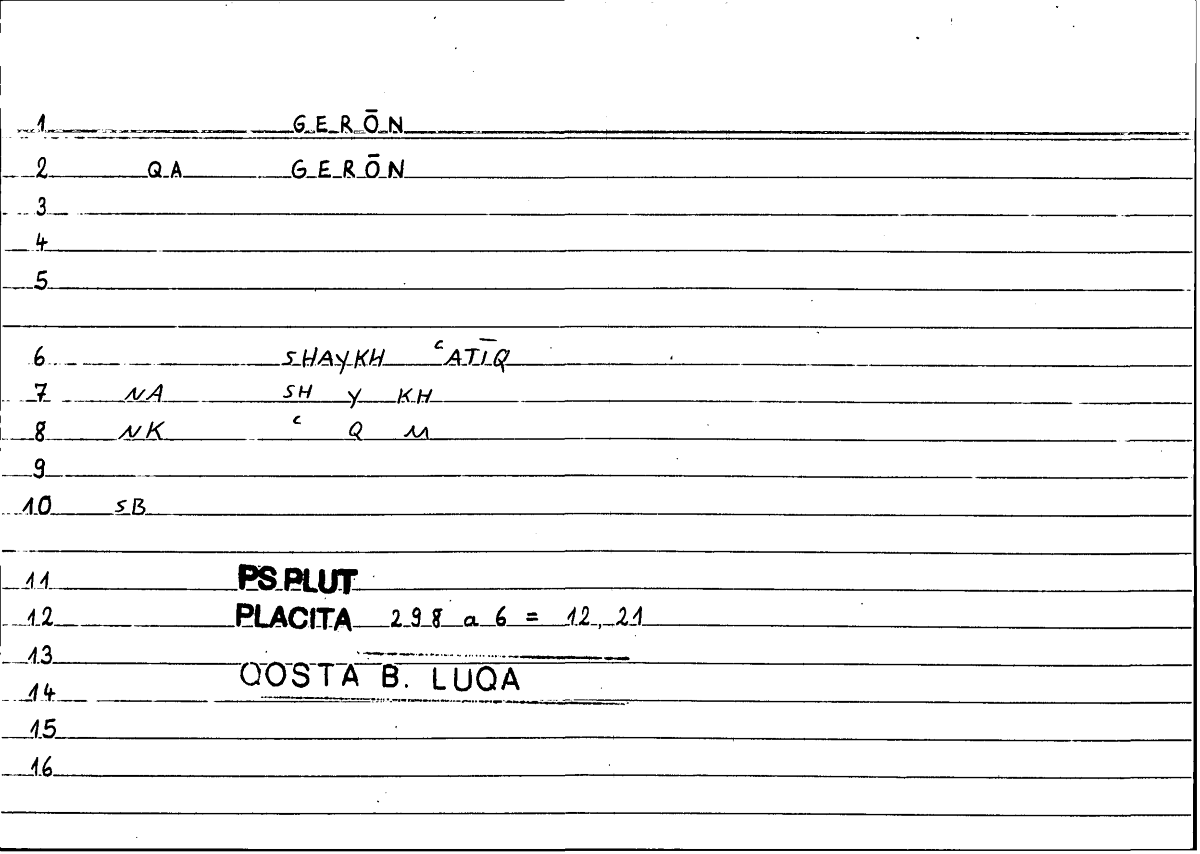 1 GERŌN
2 QA GERŌN
3
4
5
6 SHAYKH ᶜATĪQ
7 NA SH Y KH
8 NK ᶜ Q M
9
10 SB
11 PS.PLUT
12 PLACITA 298 a 6 = 12, 21
13
14 QOSTA B. LUQA
15
16